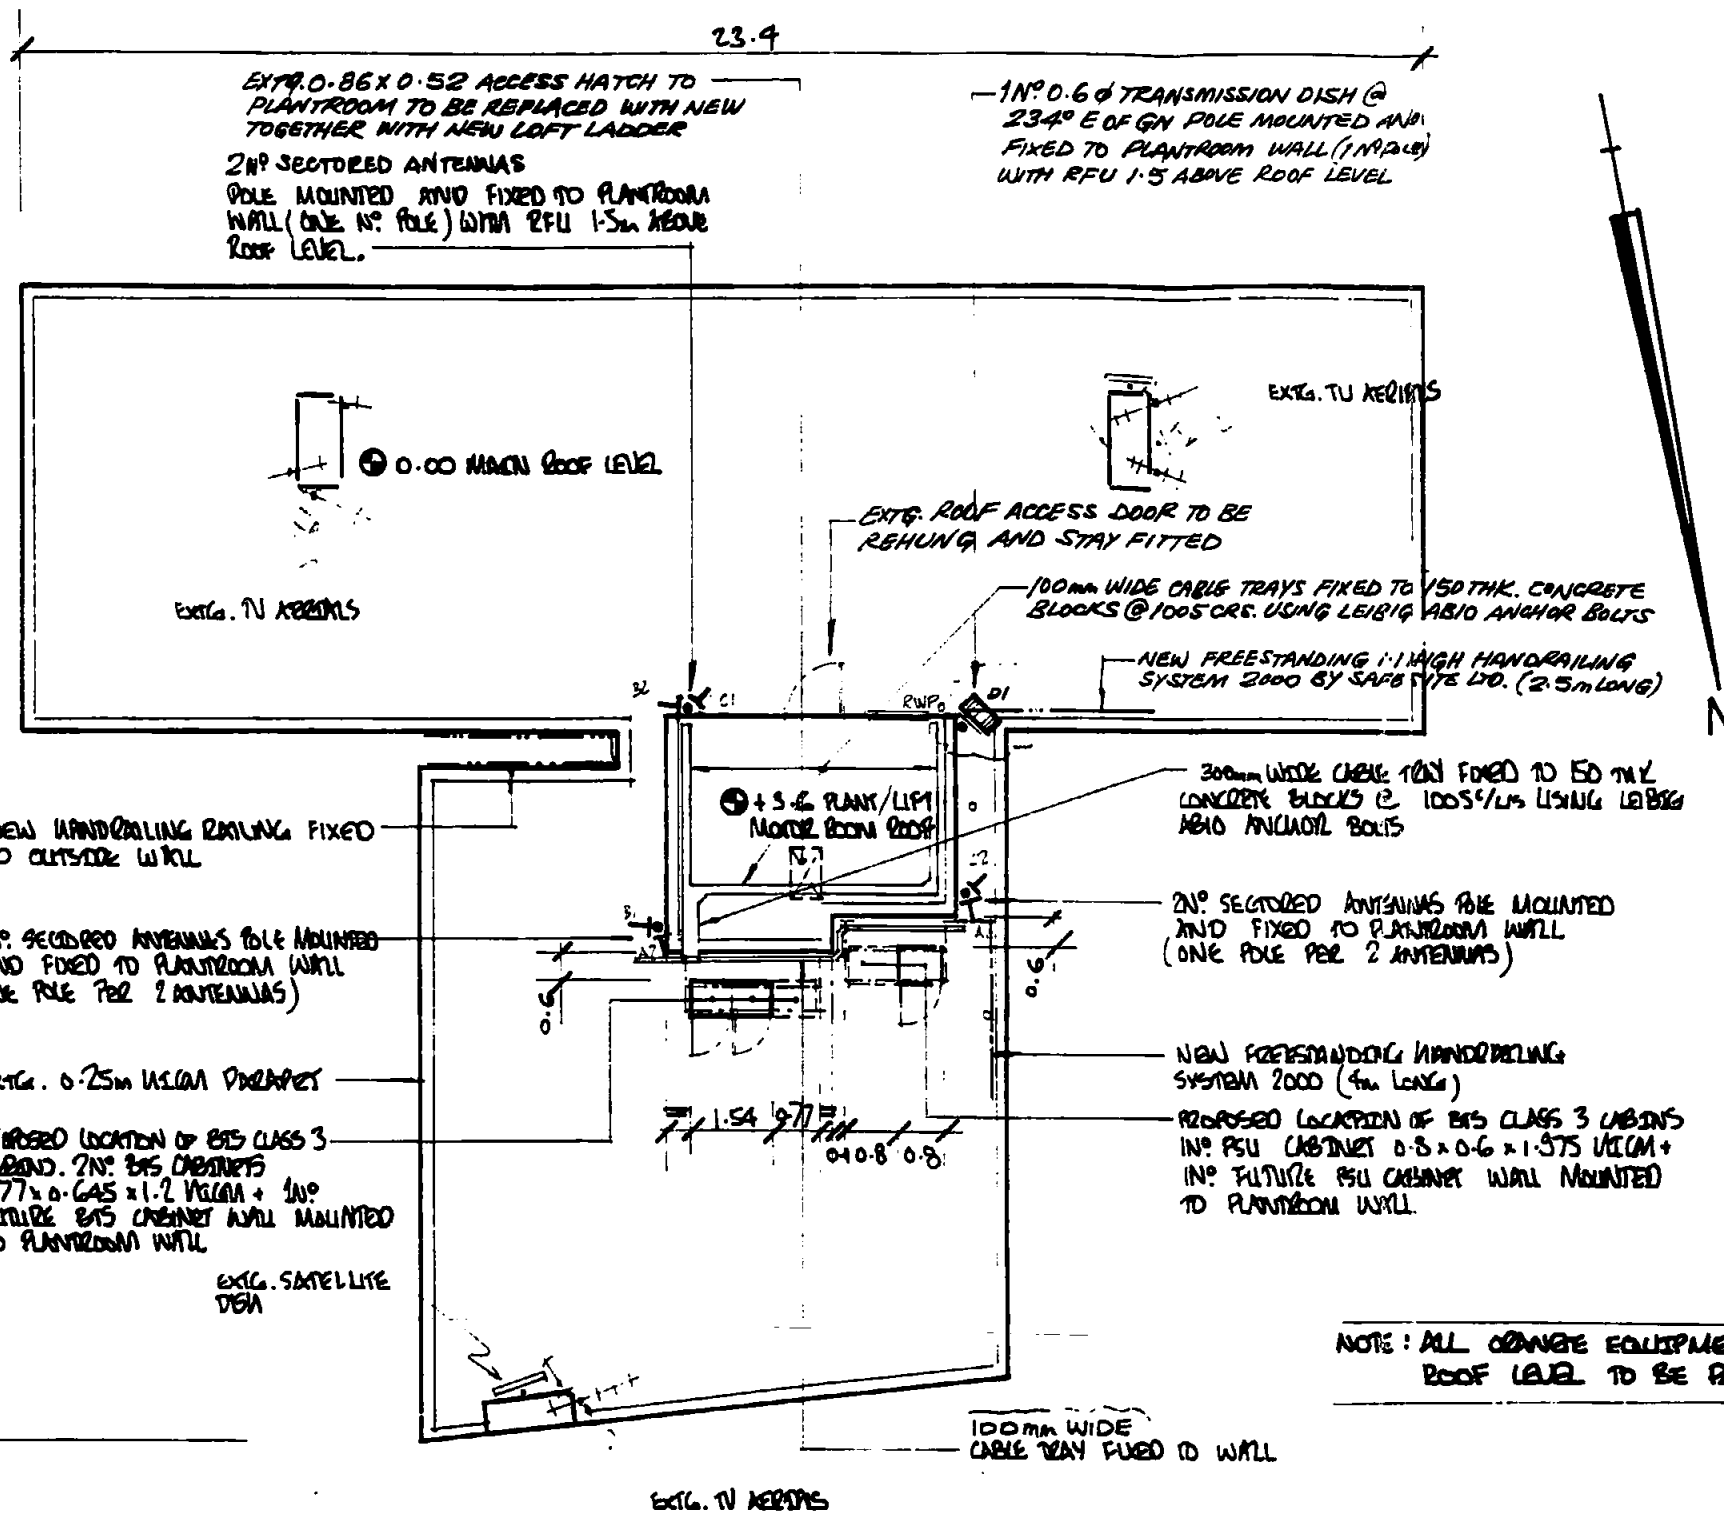 23.4
EXTG. 0.86 X 0.52 ACCESS HATCH TO
PLANTROOM TO BE REPLACED WITH NEW
TOGETHER WITH NEW LOFT LADDER
2Nº SECTORED ANTENNAS
POLE MOUNTED AND FIXED TO PLANTROOM
WALL (ONE Nº POLE) WITH RFU 1.5m ABOVE
ROOF LEVEL.
1Nº 0.6 Ø TRANSMISSION DISH @
234º E OF GN POLE MOUNTED AND
FIXED TO PLANTROOM WALL (1Nº POLE)
WITH RFU 1.5 ABOVE ROOF LEVEL
EXTG. TV AERIALS
0.00 MAIN ROOF LEVEL
EXTG. ROOF ACCESS DOOR TO BE
REHUNG AND STAY FITTED
EXTG. TV AERIALS
100mm WIDE CABLE TRAYS FIXED TO 150 THK. CONCRETE
BLOCKS @ 1005 CRS. USING LEIBIG AB10 ANCHOR BOLTS
NEW FREESTANDING 1.1 HIGH HANDRAILING
SYSTEM 2000 BY SAFESITE LTD. (2.5m LONG)
N
B2
C1
RWP
D1
300mm WIDE CABLE TRAY FIXED TO 150 THK
CONCRETE BLOCKS @ 1005 C/CS USING LEIBIG
AB10 ANCHOR BOLTS
+3.6 PLANT/LIFT
MOTOR ROOM ROOF
EW HANDRAILING RAILING FIXED
O OUTSIDE WALL
C2
2Nº SECTORED ANTENNAS POLE MOUNTED
AND FIXED TO PLANTROOM WALL
(ONE POLE PER 2 ANTENNAS)
B1
º SECTORED ANTENNAS POLE MOUNTED
ND FIXED TO PLANTROOM WALL
NE POLE PER 2 ANTENNAS)
A2
A1
0.6
0.6
NEW FREESTANDING HANDRAILING
SYSTEM 2000 (4m LONG)
TG. 0.25m HIGH PARAPET
1.54 0.77
0.1 0.8 0.8
PROPOSED LOCATION OF BTS CLASS 3 CABINS
1Nº PSU CABINET 0.8 x 0.6 x 1.975 HIGH +
1Nº FUTURE PSU CABINET WALL MOUNTED
TO PLANTROOM WALL.
POSED LOCATION OF BTS CLASS 3
2Nº BTS CABINETS
77 x 0.645 x 1.2 HIGH + 1Nº
UTURE BTS CABINET WALL MOUNTED
O PLANTROOM WALL
EXTG. SATELLITE
DISH
NOTE: ALL ORANGE EQUIPME
ROOF LEVEL TO BE
100mm WIDE
CABLE TRAY FIXED TO WALL
EXTG. TV AERIALS